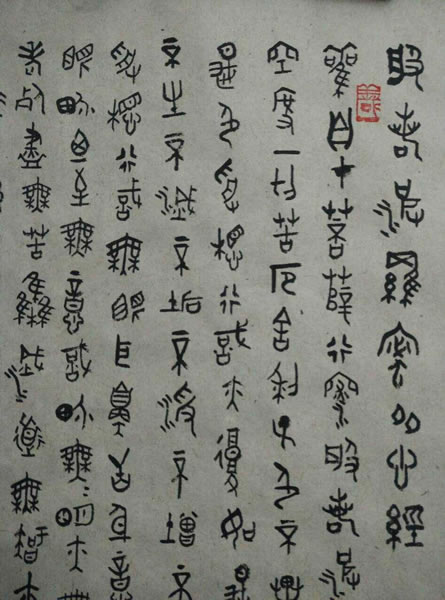 般若波羅蜜多心經
觀自在菩薩行深般若波
空度一切苦厄舍利子色不異
是色受想行識亦復如是
不生不滅不垢不淨不增不
受想行識無眼耳鼻舌身意
眼界乃至無意識界無無明亦無
老死盡無苦集滅道無智亦